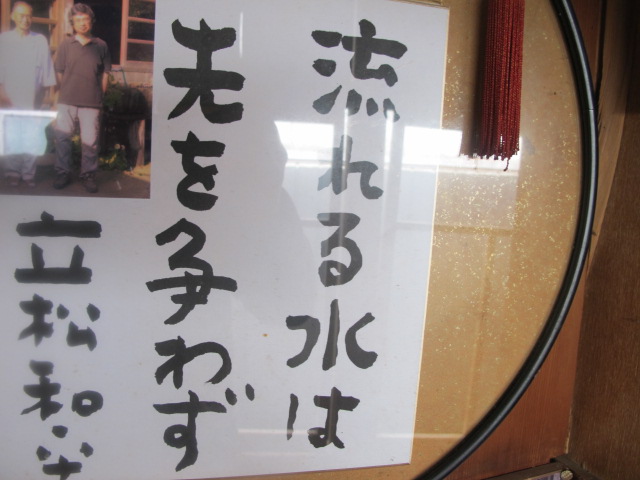 流れる水は
先を争わず
立松和平